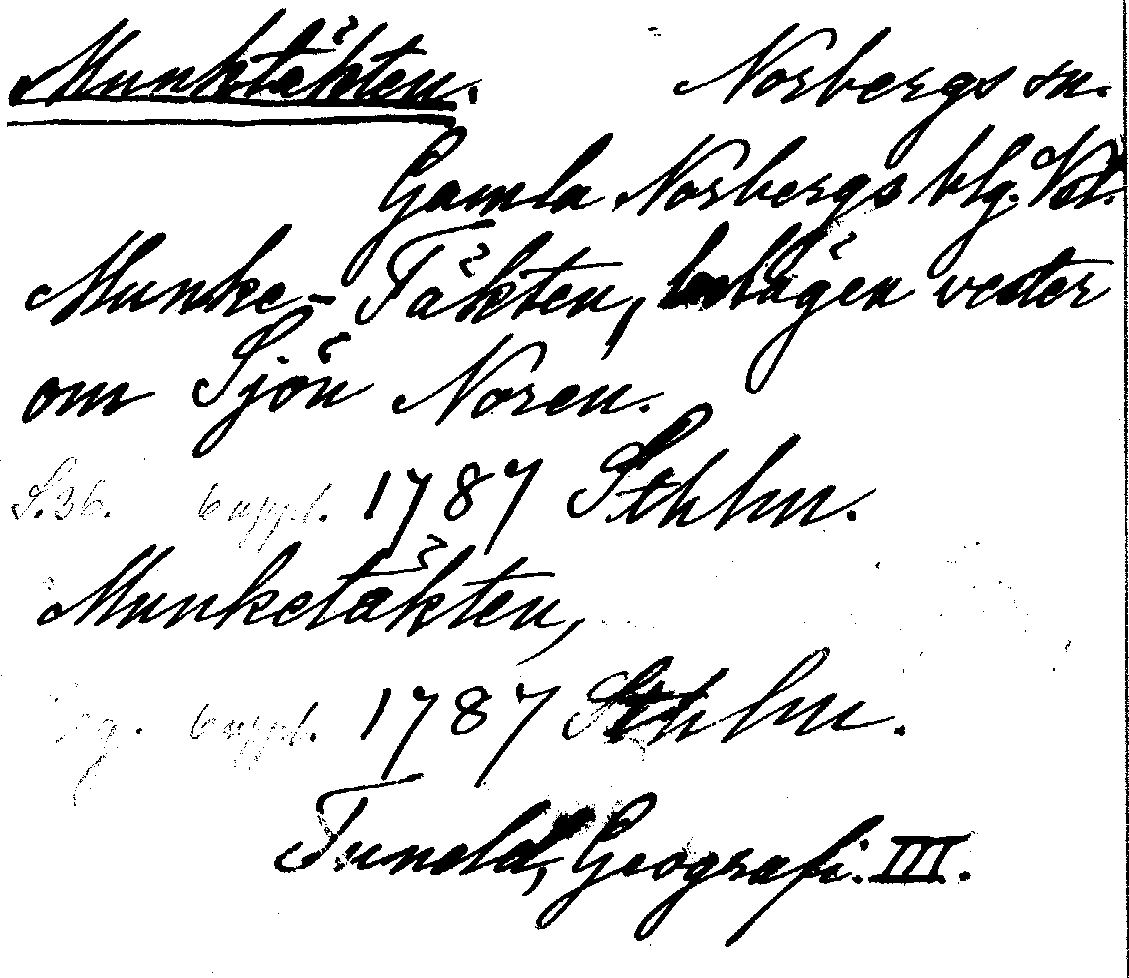 Munktäkten. Norbergs sn.
Gamla Norbergs blg. Vstl.
Munke-Täkten, belägen vester
om Sjön Noren.
S. 36. 6 uppl. 1787 Sthlm.
Munketäkten,
6 uppl. 1787 Sthlm.
Tuneld, Geografi. III.